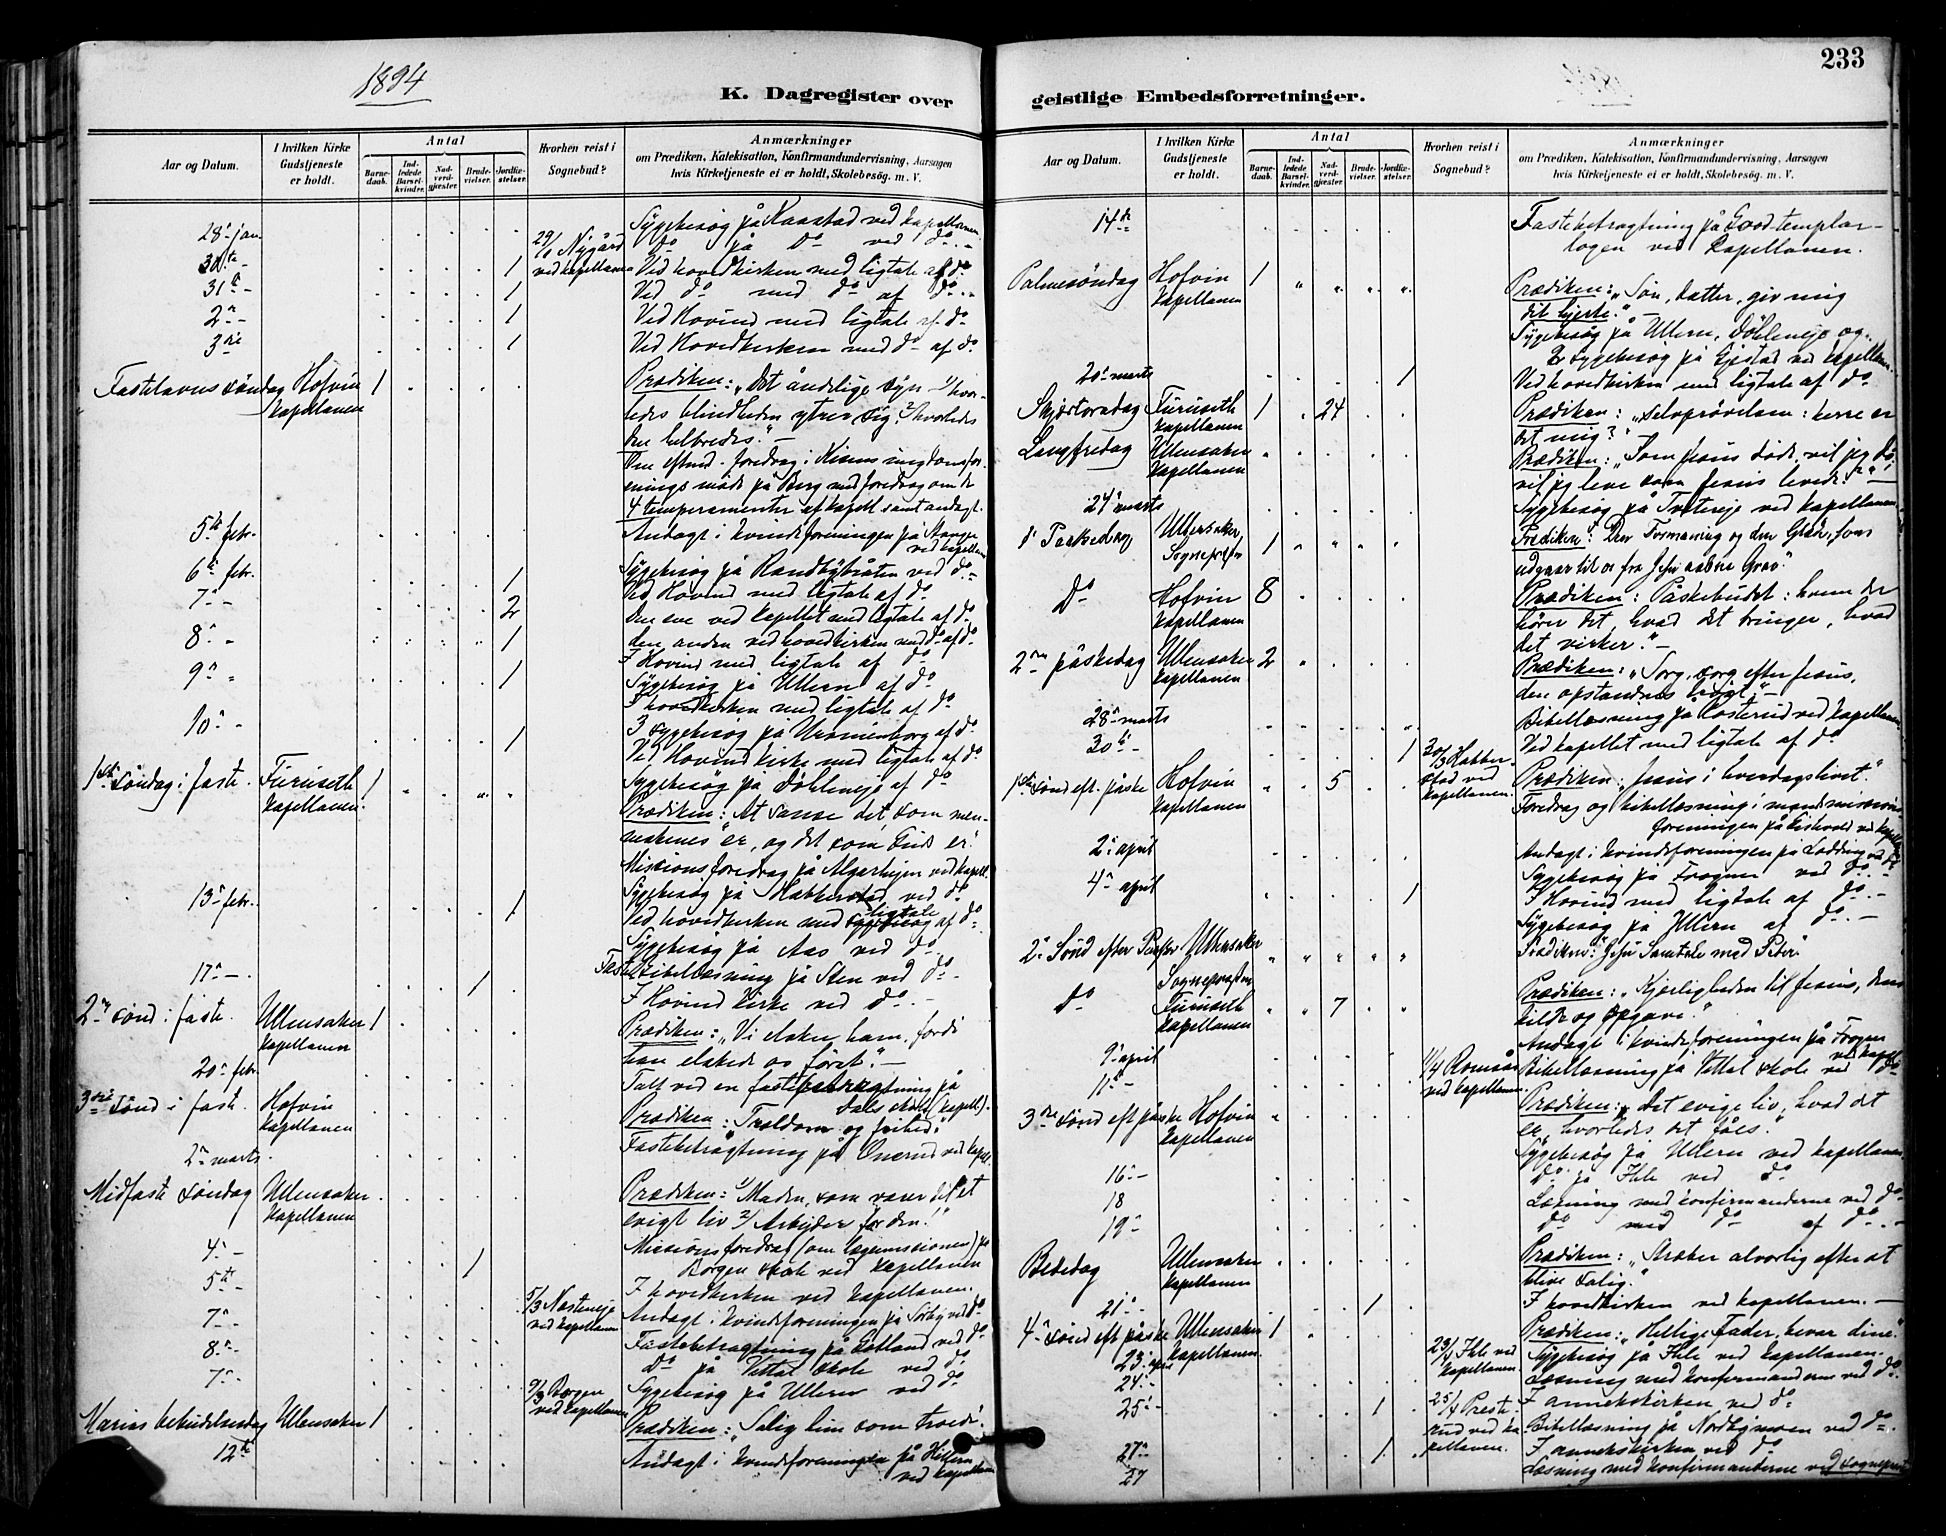 1894
K. Dagregister over
Aar og Datum.
I hvilken Kirke Gudstjeneste er holdt.
Antal
Barnedaab.
Indledede Barselkvinder.
Nadverdgjæster.
Brudevielser.
Jordfæstelser.
Hvorhen reist i Sognebud?
Anmærkninger
om Prædiken, Katekisation, Konfirmandundervisning, Aarsagen
hvis Kirketjeneste ei er holdt, Skolebesøg. m. V.
28 jan. Sygebesøg på Kaastad ved kapellanen
29/1 Nygård ved kapellanen do på do ved do
30te 1 Ved hovedkirken med ligtale af do
31te 1 Ved do med do af do
2n 1 Ved Hovind med ligtale af do
3die 1 Ved Hovedkirken med do af do
Fastelavns søndag Hofvin kapellanen 1 Prædiken: "Det åndelige syn 1) hvor-
ledes blindheden ytrer sig, 2) hvorledes
den helbredes." -
foredrag i Kisens ungdomsfor-
enings møde på Berg med foredrag om de
4 temperamenter af kapell samt andagt.
5te febr. Andagt i kvindeforeningen på
ved kapellan
6te febr. 1 Sygebesøg på Randbybråten ved do
7n 2 Ved Hovind med ligtale af do
Den ene ved kapellet med ligtale af do
8n 1 den anden ved hovedkirken med do af do
I Hovind med ligtale af do
9n 1 Sygebesøg på Ullern af do
I hovedkirken med ligtale af do
10n 1 3 sygebesøg på Uranienborg af do
Ved Hovind kirke med ligtale af do
1ste søndag i faste. Furuseth kapellanen 1 Sygebesøg på Døhleneje af do
Prædiken: At sanse det som men-
neskenes er, og det som Guds er.
Missionsforedrag på Algarheim ved kapell.
13n febr. 1 Sygebesøg på Habberstad ved do
Ved hovedkirken med ligtale af do
Sygebesøg på Aas ved do
17n 1 Fastebibellæsning på Sten ved do
I Hovind kirke ved do
2n sønd i faste. Ullensaker kapellanen 1 Prædiken: "Vi elsker ham, fordi
han elskede os først." -
20n febr. Talt ved en fastebetragtning på
skole (kapell).
3die sønd i faste. Hofvin kapellanen Prædiken: "Trældom og frihed."
2n marts Fastebetragtning på Onerud ved kapell
Midfaste søndag Ullensaker kapellanen Prædiken: 1) Maden, som varer til et
evigt liv 2) Arbejder for den!"
4n Missionsforedrag (om lægemissionen) på
Borgen skole ved kapellanen
5te 1 I hovedkirken ved kapellanen.
7n 5/3 Nesteneje ved kapellanen Andagt i kvindeforeningen på ved do
8n Fastebetragtning på ved do
7n do på skole ved do
9/3 Borgen ved kapellanen Sygebesøg på Ullern ved do
Marias bebudelsesdag Ullensaker 1 Prædiken: "Salig hun som troede."
12te Andagt i kvindeforeningen på
ved kapellan
233
geistlige Embedsforretninger.
Aar og Datum.
I hvilken Kirke Gudstjeneste er holdt.
Antal
Barnedaab.
Indledede Barselkvinder.
Nadverdgjæster.
Brudevielser.
Jordfæstelser.
Hvorhen reist i Sognebud?
Anmærkninger
om Prædiken, Katekisation, Konfirmandundervisning, Aarsagen
hvis Kirketjeneste ei er holdt, Skolebesøg. m. V.
14de Fastebetragtning på Good-templar-
logen ved kapellanen.
Palmesøndag Hofvin kapellanen 1 Prædiken: "Søn, datter, giv mig
dit hjerte." -
Sygebesøg på Ullern, Døhleneje og
sygebesøg på Gjestad ved kapellan.
20n marts 1 Ved hovedkirken med ligtale af do
Skjærtorsdag Furuseth kapellanen 1 24 Prædiken: "Selvprøvelsen: herre er
det mig?"
Langfredag Ullensaker kapellanen Prædiken: "Som Jesus døde, vil jeg dø,
vil jeg leve som Jesus levede?" -
24n marts Sygebesøg på Tveteneje ved kapellanen
1' Paaskedag Ullensaker, Sognepræsten 1 Prædiken: Den Formaning og den Glæde, som
udgaar til os fra Jesu aabne Grav.
do Hofvin kapellanen 8 Prædiken: Påskebudet: hvem der
hører det, hvad det bringer, hvad
det virker." -
2den påskedag Ullensaker kapellanen 2 Prædiken: "Sorg, sorg efter Jesus,
den opstandnes" -
28n marts Bibellæsning på Kosterud ved kapellan.
30te 1 Ved kapellet med ligtale af do
30/3 Habberstad ved kapellanen.
1ste sønd eft. påske Hofvin kapellanen 5 Prædiken: "Jesus i hverdagslivet."
Foredrag og bibellæsning i mandsmissions-
foreningen på ved kapellan
2n april Andagt i kvindeforeningen på ved do
4n april 1 Sygebesøg på Frogner ved do
I Hovind med ligtale af do
Sygebesøg på Ullern af do
2n Sønd efter Paaske Ullensaker Sognepræsten Prædiken: Jesu Samtale med Peter
do Furuseth kapellanen 7 Prædiken: "Kjærligheden til Jesus, dens
kilde og opgave."
9n april Andagt i kvindeforeningen på Frogner
ved kapell
11te 11/4 Romsås ved kapellanen Bibellæsning på skole ved do
3die sønd eft påske Hofvin kapellanen Prædiken: "Det evige liv, hvad det
er, hvorledes det fåes."
Sygebesøg på Ullern ved kapellanen
16n do på Ihle ved do
18 Læsning med konfirmanderne ved do
19n do med do af do
Bededag Ullensaker kapellanen Prædiken: "Stræber alvorlig efter at
blive salig."
21n 1 I hovedkirken ved kapellanen. -
4n sønd eft påske Ullensaker kapellanen. 1 Prædiken: "Hellige Fader, bevar dine."
23. apr 23/4 Ihle ved kapellanen. Sygebesøg på Ihle ved kapellanen.
24n Læsning med konfirmanderne ved do
25n 1 25/4 Presterud ved kapellanen. I annekskirken ved do
Bibellæsning på Nordbymoen ved do
27n 1 I annekskirken ved do
27 Læsning med konfirmanterne ved sognepræst